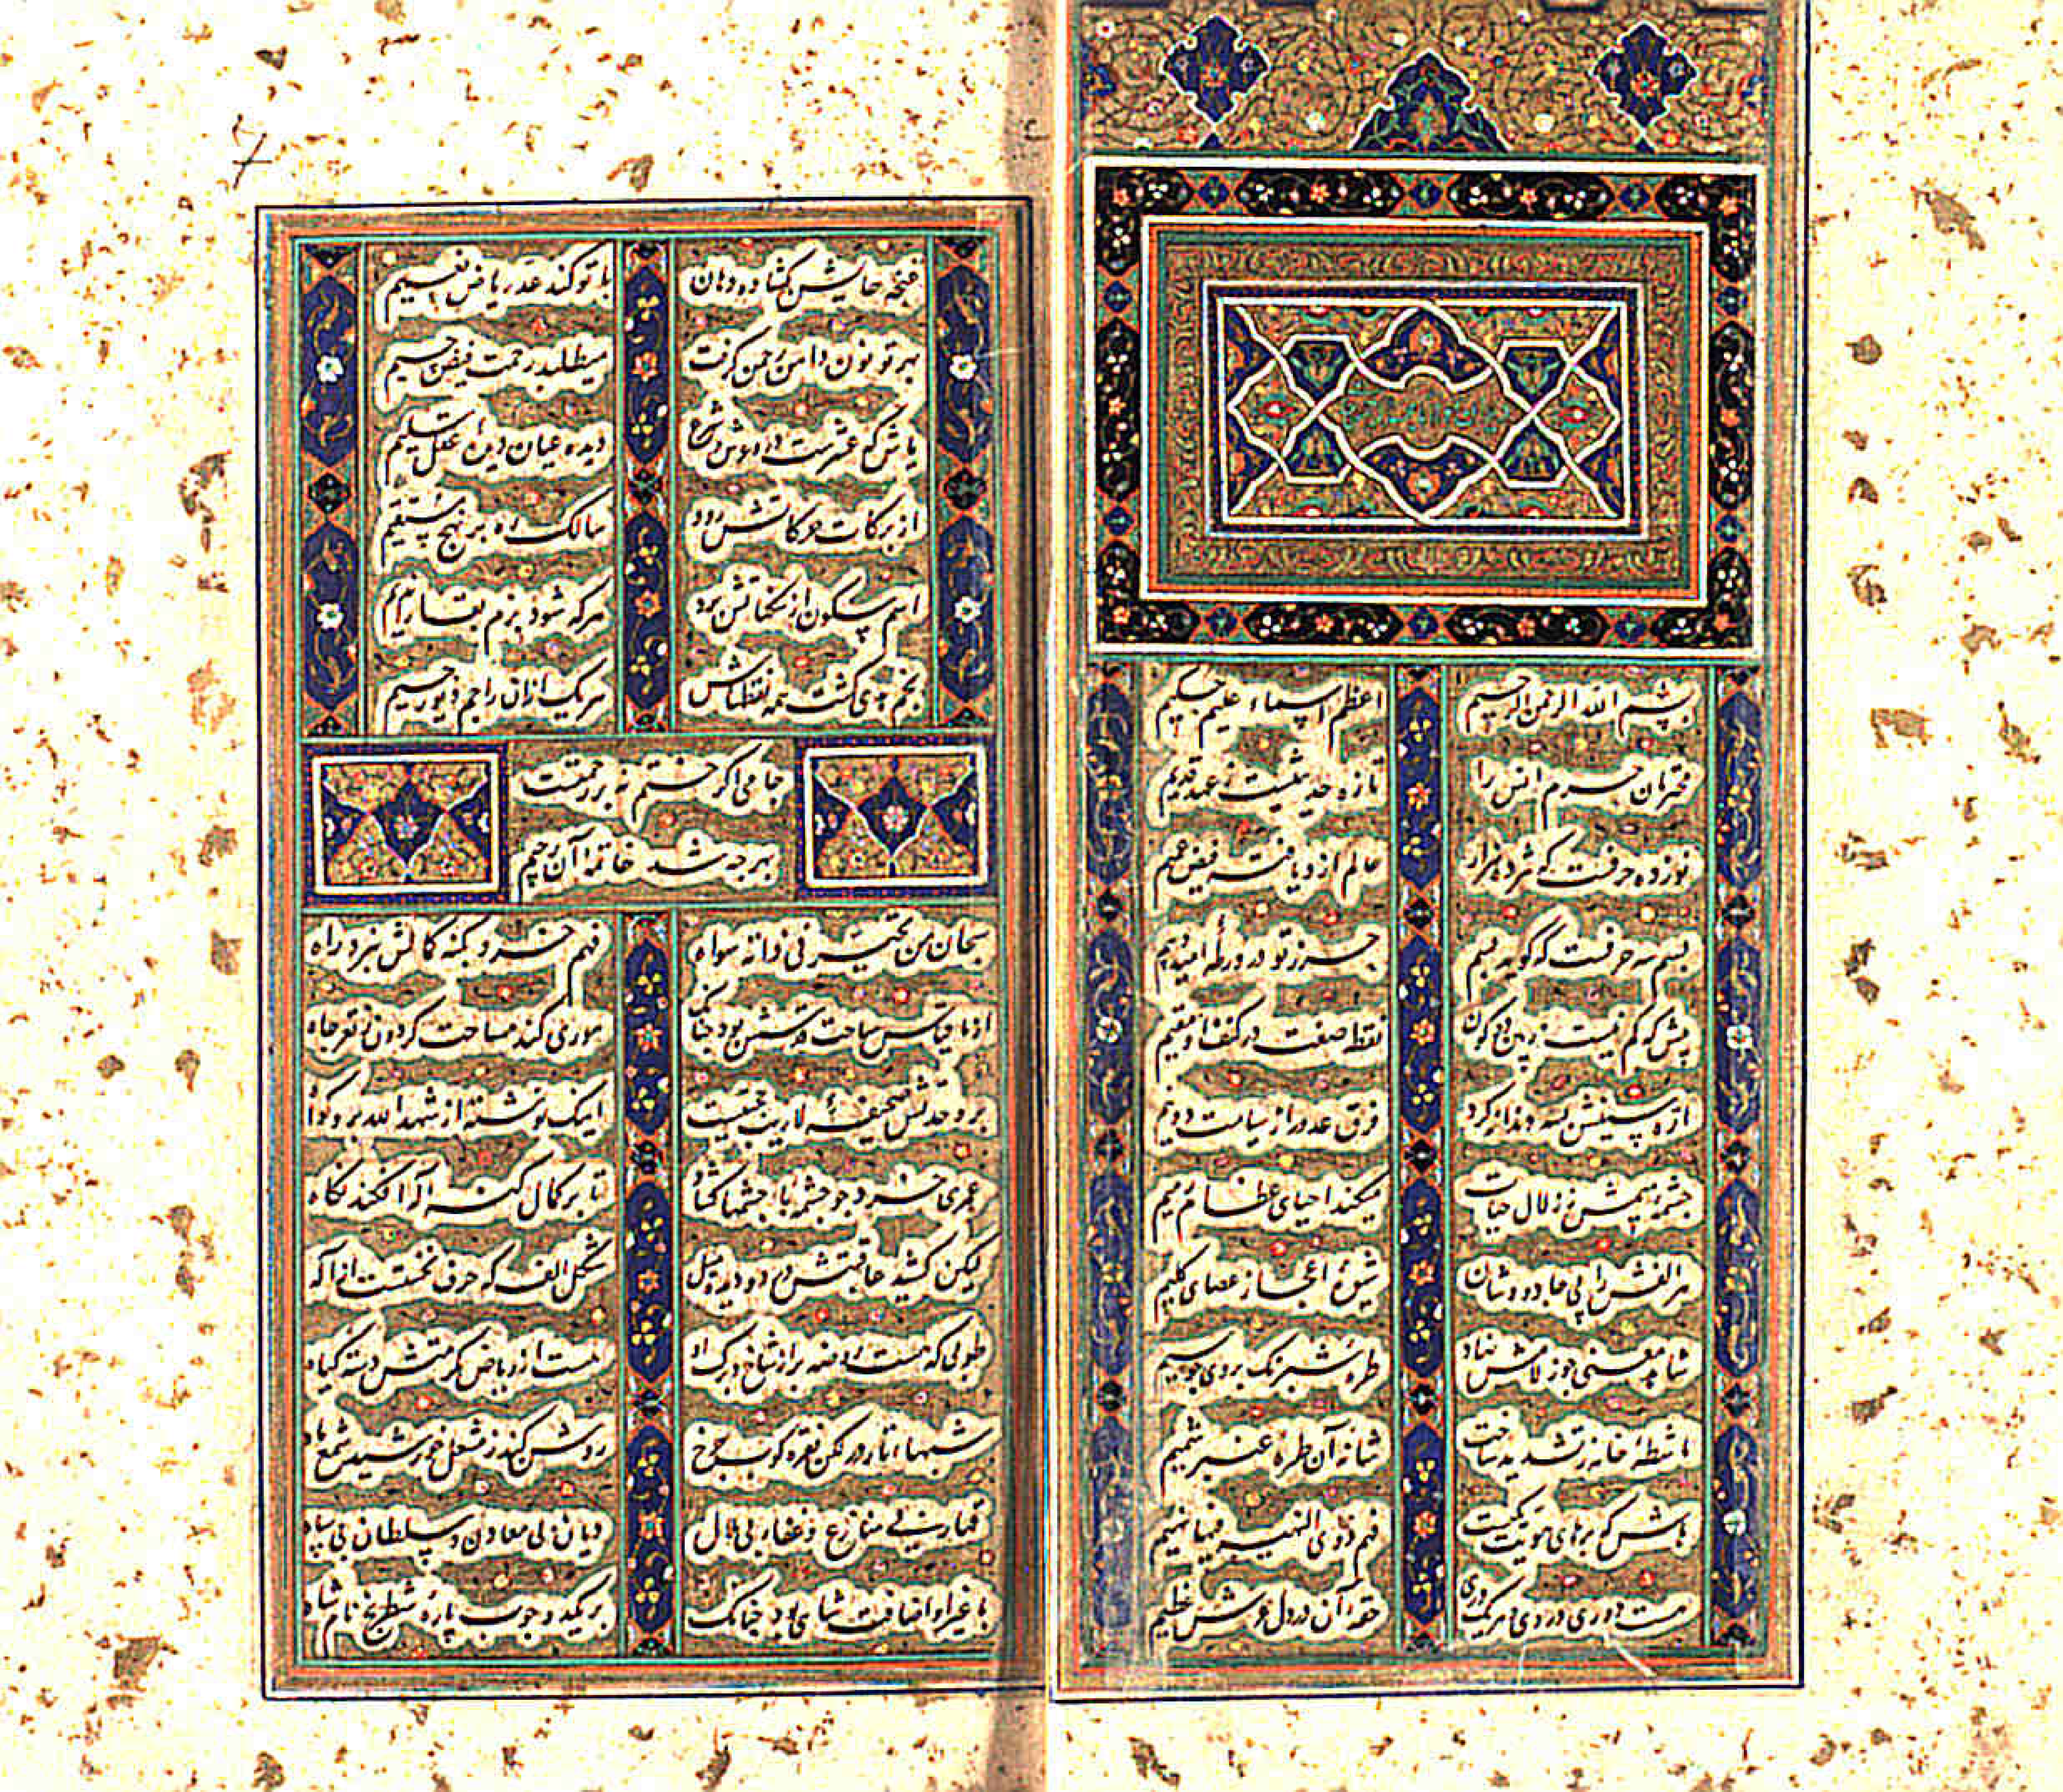 بسم الله الرحمن الرحیم اعظم اسماء علیم حکیم
محترمان حرم انس را تازه حدیثیست ز عهد قدیم
نوزده حرفست که هژده هزار عالم ازو یافته فیض عمیم
بسم سه حرفست که گوید بسم حرز تو در ورطه امید و بیم
پیش که کم نیست ز پنج کون نقطه صفت در کنف او مقیم
ازه سینش بسه دندانه کرد فرق عدو را ز سیاست دو نیم
چشمه میمش ز زلال حیات میکند احیای عظام رمیم
هر الفش را پی جادووشان شیوه اعجاز عصای کلیم
شاهد معنی چو ز لامش نهاد طره شبرنگ بروی چو سیم
ماشطه خامه ز تشدید ساخت شانه آن طره عنبر شمیم
هاش که بر های هویت یکیست فهم ذوی الفهم فیها یهیم
هست دوری در وی و هر یک دری حقه آن در دل عرش عظیم
غنچه حایش گشاده دهان با تو کند عد ریاض نعیم
بهر تو نون دامن رحمن گرفت میطلبد رحمت فیض رحیم
یاش که عشرست ده و شش شرع دیده عیان دیده عقل سلیم
از برکات حرکاتش رود سالک ره بر نهج مستقیم
اسم سکون از سکناتش برد هر که شود بزم بقا را ندیم
نجم هدی گشت همه نقطهاش هر یک از ان راجم دیو رجیم
جامی اگر ختم نه بر رحمتست
بهر چه شد خاتمه آن رحیم
سبحان من تحیر فی ذاته سواه فهم خرد بکنه کمالش نبرد راه
از ما قیاس ساحت قدسش بود چنانک موری کند مساحت گردون ز قعر چاه
بر وحدتش صحیفه لاریب حجتست اینک نوشته از شهد الله برو گواه
عمری خرد چو چشمه ها چشمها گشاد تا بر کمال کنه اله افکند نگاه
لیکن کشید عاقبتش در دو دیده میل شکل الف که حرف نخستست از اله
طوبی که هست روضه پر از شاخ و برگ او هست از ریاض مکرمتش دسته گیاه
شبها انار در لگن نقره کوب چرخ روشن کند ز مشعل خورشید شمع ماه
قهار بی منازع و غفار بی ملال دیان بی معادن و سلطان بی سپاه
با غیر او اضافت شاهی بود چنانک بر یک دو چوب پاره شطرنج نام شاه